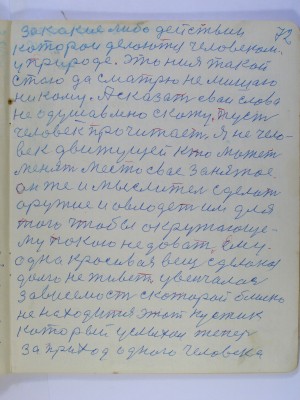 72
за какие либо действии
которой делают человеком
у природе. Это ния такой
стого да сматрю не мишаю
никому. А сказат сваи слова
не одушавлно скажу, пуст
человек прочитает. Я не чело-
век движущей кто может
менят место свае занятое.
он же и мыслител сделает
оружие и овлодет им для
того чтобы окружающе-
му покою не доват, ему.
одна кросивая вещ сделана
долго не живет, увенчалас
зависемост с которай близко
не находится этот кустик
который успихам тепер
за приход одного человека